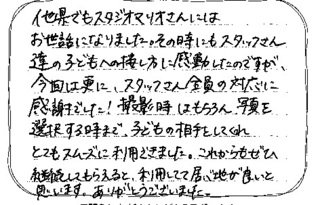 他県でもスタジオマリオさんには
お世話になりました。その時にもスタッフさん
達の子どもへの接し方に感動したのですが、
今回は更に、スタッフさん全員の対応に
感謝でした！撮影時はもちろん、写真を
選択する時まで、子どもの相手をしてくれ
とてもスムーズに利用できました。これからもぜひ
継続してもらえると、利用してて居心地が良いと
思います。ありがとうございました。